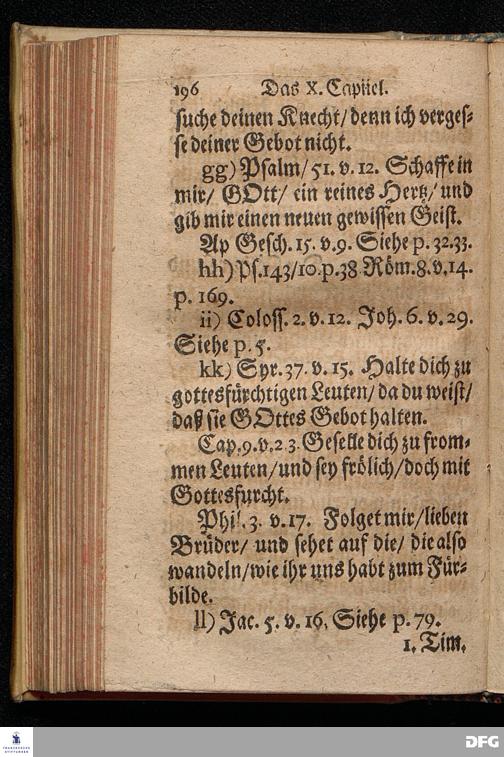 196 Das X. Capitel.
suche deinen Knecht/ denn ich verges-
se deiner Gebot nicht.
gg) Psalm/ 51. v. 12. Schaffe in
mir/ GOtt/ ein reines Hertz/ und
gib mir einen neuen gewissen Geist.
Ap Gesch. 15. v. 9. Siehe p. 32.33.
hh) Ps.143/10.p.38 Röm.8.v.14.
p. 169.
ii) Coloss. 2. v. 12. Joh. 6. v. 29.
Siehe p. 5.
kk) Syr. 37. v. 15. Halte dich zu
gottesfürchtigen Leuten/ da du weist/
daß sie GOttes Gebot halten.
Cap. 9. v. 23. Geselle dich zu from-
men Leuten/ und sey frölich/ doch mit
Gottesfurcht.
Phil. 3. v. 17. Folget mir/ lieben
Brüder/ und sehet auf die/ die also
wandeln/ wie ihr uns habt zum Für-
bilde.
ll) Jac. 5. v. 16. Siehe p. 79.
1. Tim.
FRANCKESCHE
STIFTUNGEN
DFG